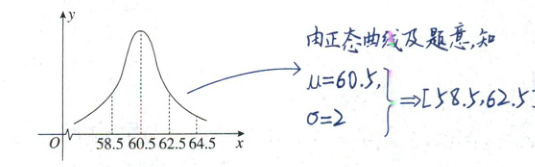 y
由正态曲线及题意,知
μ=60.5,
σ=2
⇒[58.5,62.5]
O 58.5 60.5 62.5 64.5 x